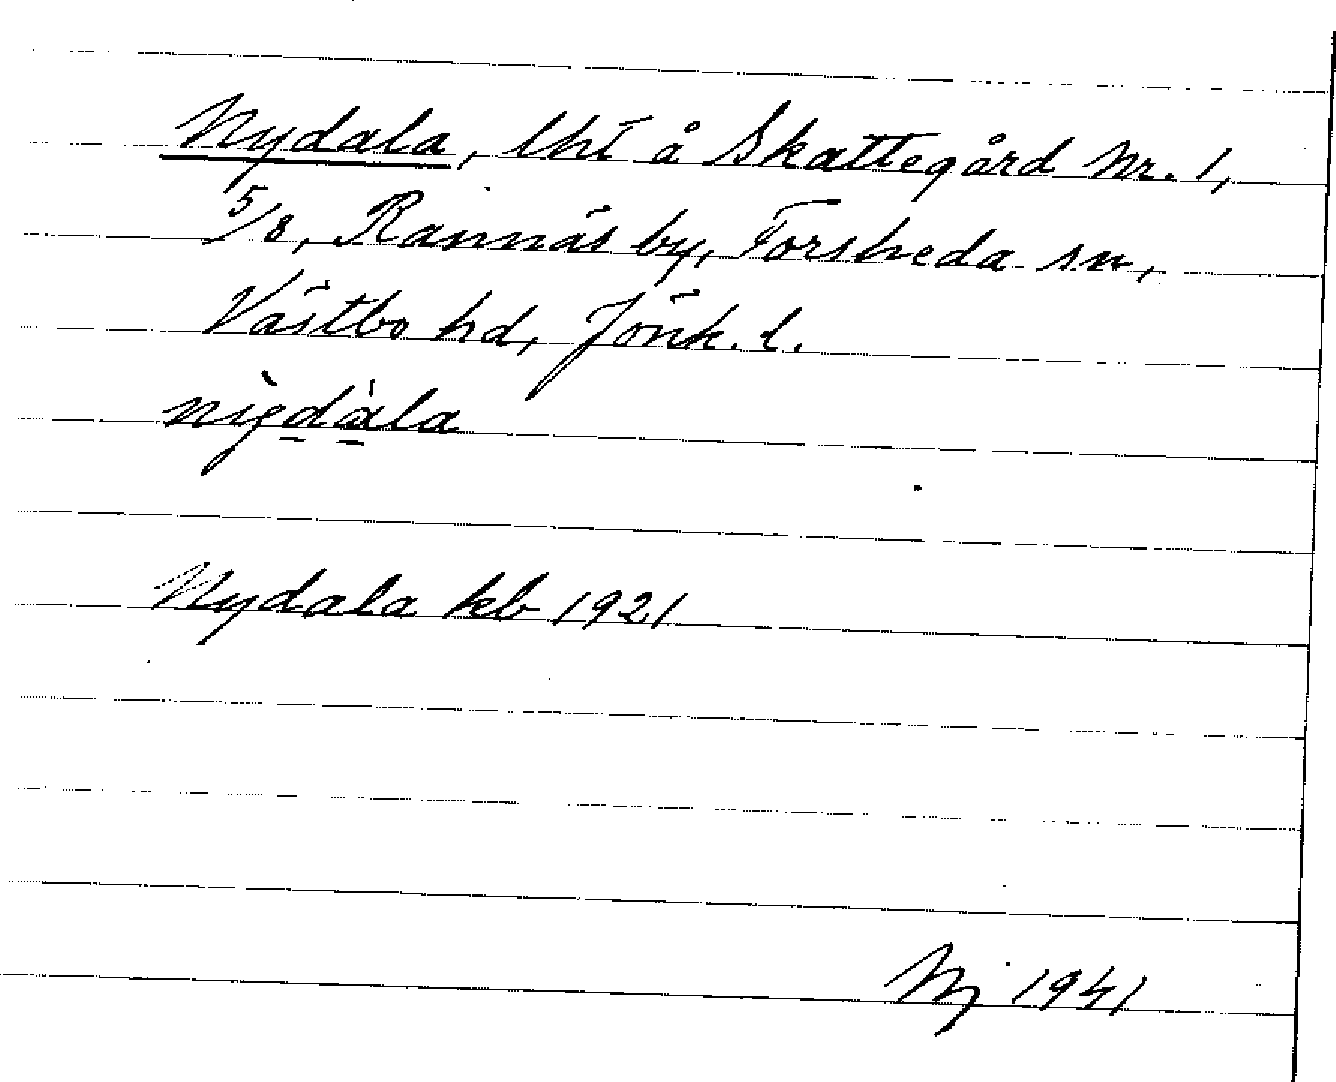 Nydala, lht å Skattegård Nr. 1,
5/8, Rannäs by, Forsheda sn,
Västbo hd, Jönk. l.
Nydala kb 1921
Nj 1941